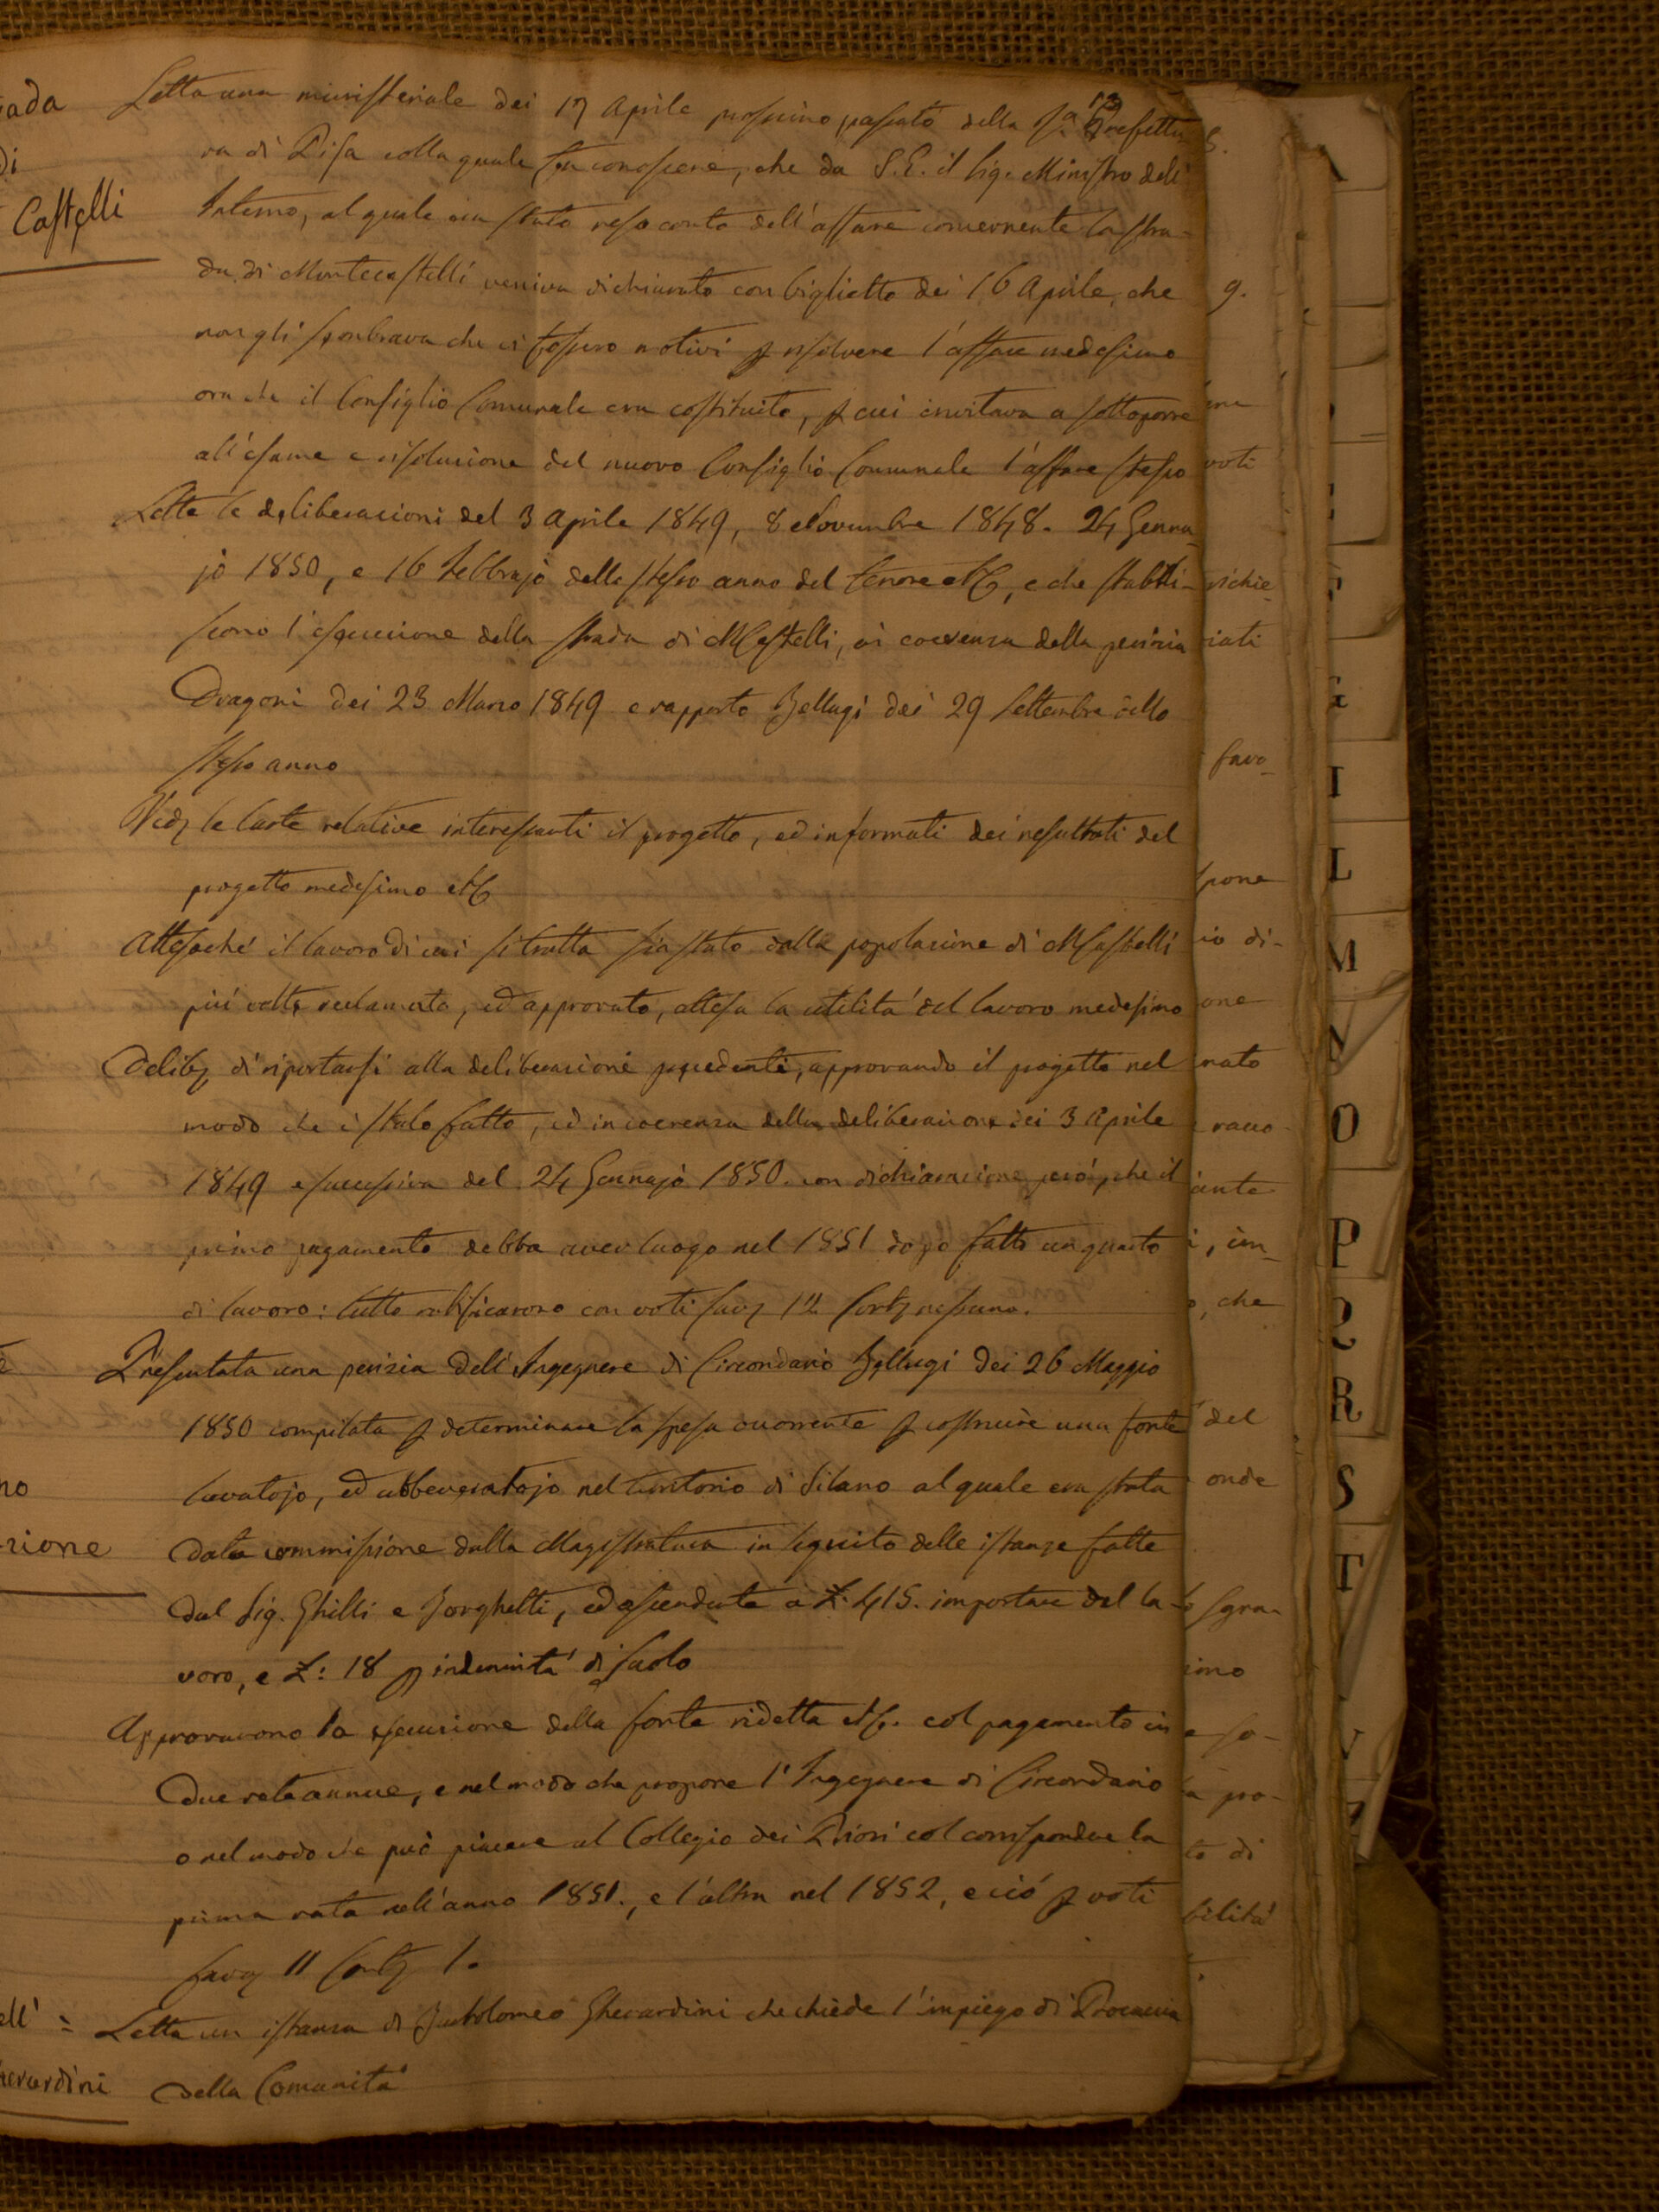 Letta una ministeriale dei 17 Aprile prossimo passato della Ra Prefettu
ra di Pisa colla quale fa conoscere, che da S.E. il Sig. Ministro dell'
Interno, al quale era stato reso conto dell'affare concernente la stra-
da di Montecastelli veniva dichiarato con biglietto dei 16 Aprile, che
non gli sembrava che ci fossero motivi p risolvere l'affare medesimo
ora che il Consiglio Comunale era costituito, p cui invitava a sottoporre
all'esame e risoluzione del nuovo Consiglio Comunale l'affare stesso
Lette le deliberazioni del 3 Aprile 1849, 8 Novembre 1848. 24 Genna
jo 1850, e 16 Febbrajo dello stesso anno del tenore, e che stabili-
scono l'esecuzione della strada di MCastelli, in coerenza della perizia
Dragoni dei 23 Marzo 1849 e rapporto Bellugi dei 29 Settembre dello
stesso anno
le Carte relative interessanti il progetto, ed informati dei resultati del
progetto medesimo
Attesochè il lavoro di cui si tratta sia stato dalla popolazione di MCastelli
più volte reclamato, ed approvato, attesa la utilità del lavoro medesimo
Delib di riportarsi alla deliberazioni precedenti, approvando il progetto nel
modo che è stato fatto, ed in coerenza della deliberazione dei 3 Aprile
1849 e successiva del 24 Gennajo 1850. con dichiarazione però, che il
primo pagamento debba aver luogo nel 1851 dopo fatto un quarto
di lavoro: tutto ratificarono con voti fav 12 Cont nessuno.
Presentata una perizia dell'Ingegnere di Circondario Bellugi dei 26 Maggio
1850 compilata p determinare la spesa occorrente p costruire una fonte
lavatojo, ed abbeveratojo nel territorio di Silano al quale era stata
data commissione dalla Magistratura in seguito delle istanze fatte
dal Sig. Ghilli e Borghetti, ed ascendente a £: 415. importare del la-
voro, e £: 18 p indennità di suolo
Approvarono la esecuzione della fonte ridetta col pagamento in
due rate annue, e nel modo che propone l'Ingegnere di Circondario
o nel modo che può piacere al Collegio dei Priori col corrispondere la
prima rata nell'anno 1851., e l'altra nel 1852, e ciò p voti
fav 11 Cont 1.
Letta un istanza di Bartolomeo Gherardini che chiede l'impiego di Procaccia
della Comunità
Castelli
di
zione
ell' =
erardini
9.
voti
richie
iati
favo
pone
io di-
one
nato
racco
ante
i, im
, che
del
onde
sgra
imo
e so-
a pro-
to di
bilità
I
L
M
N
O
P
Q
R
S
T
V